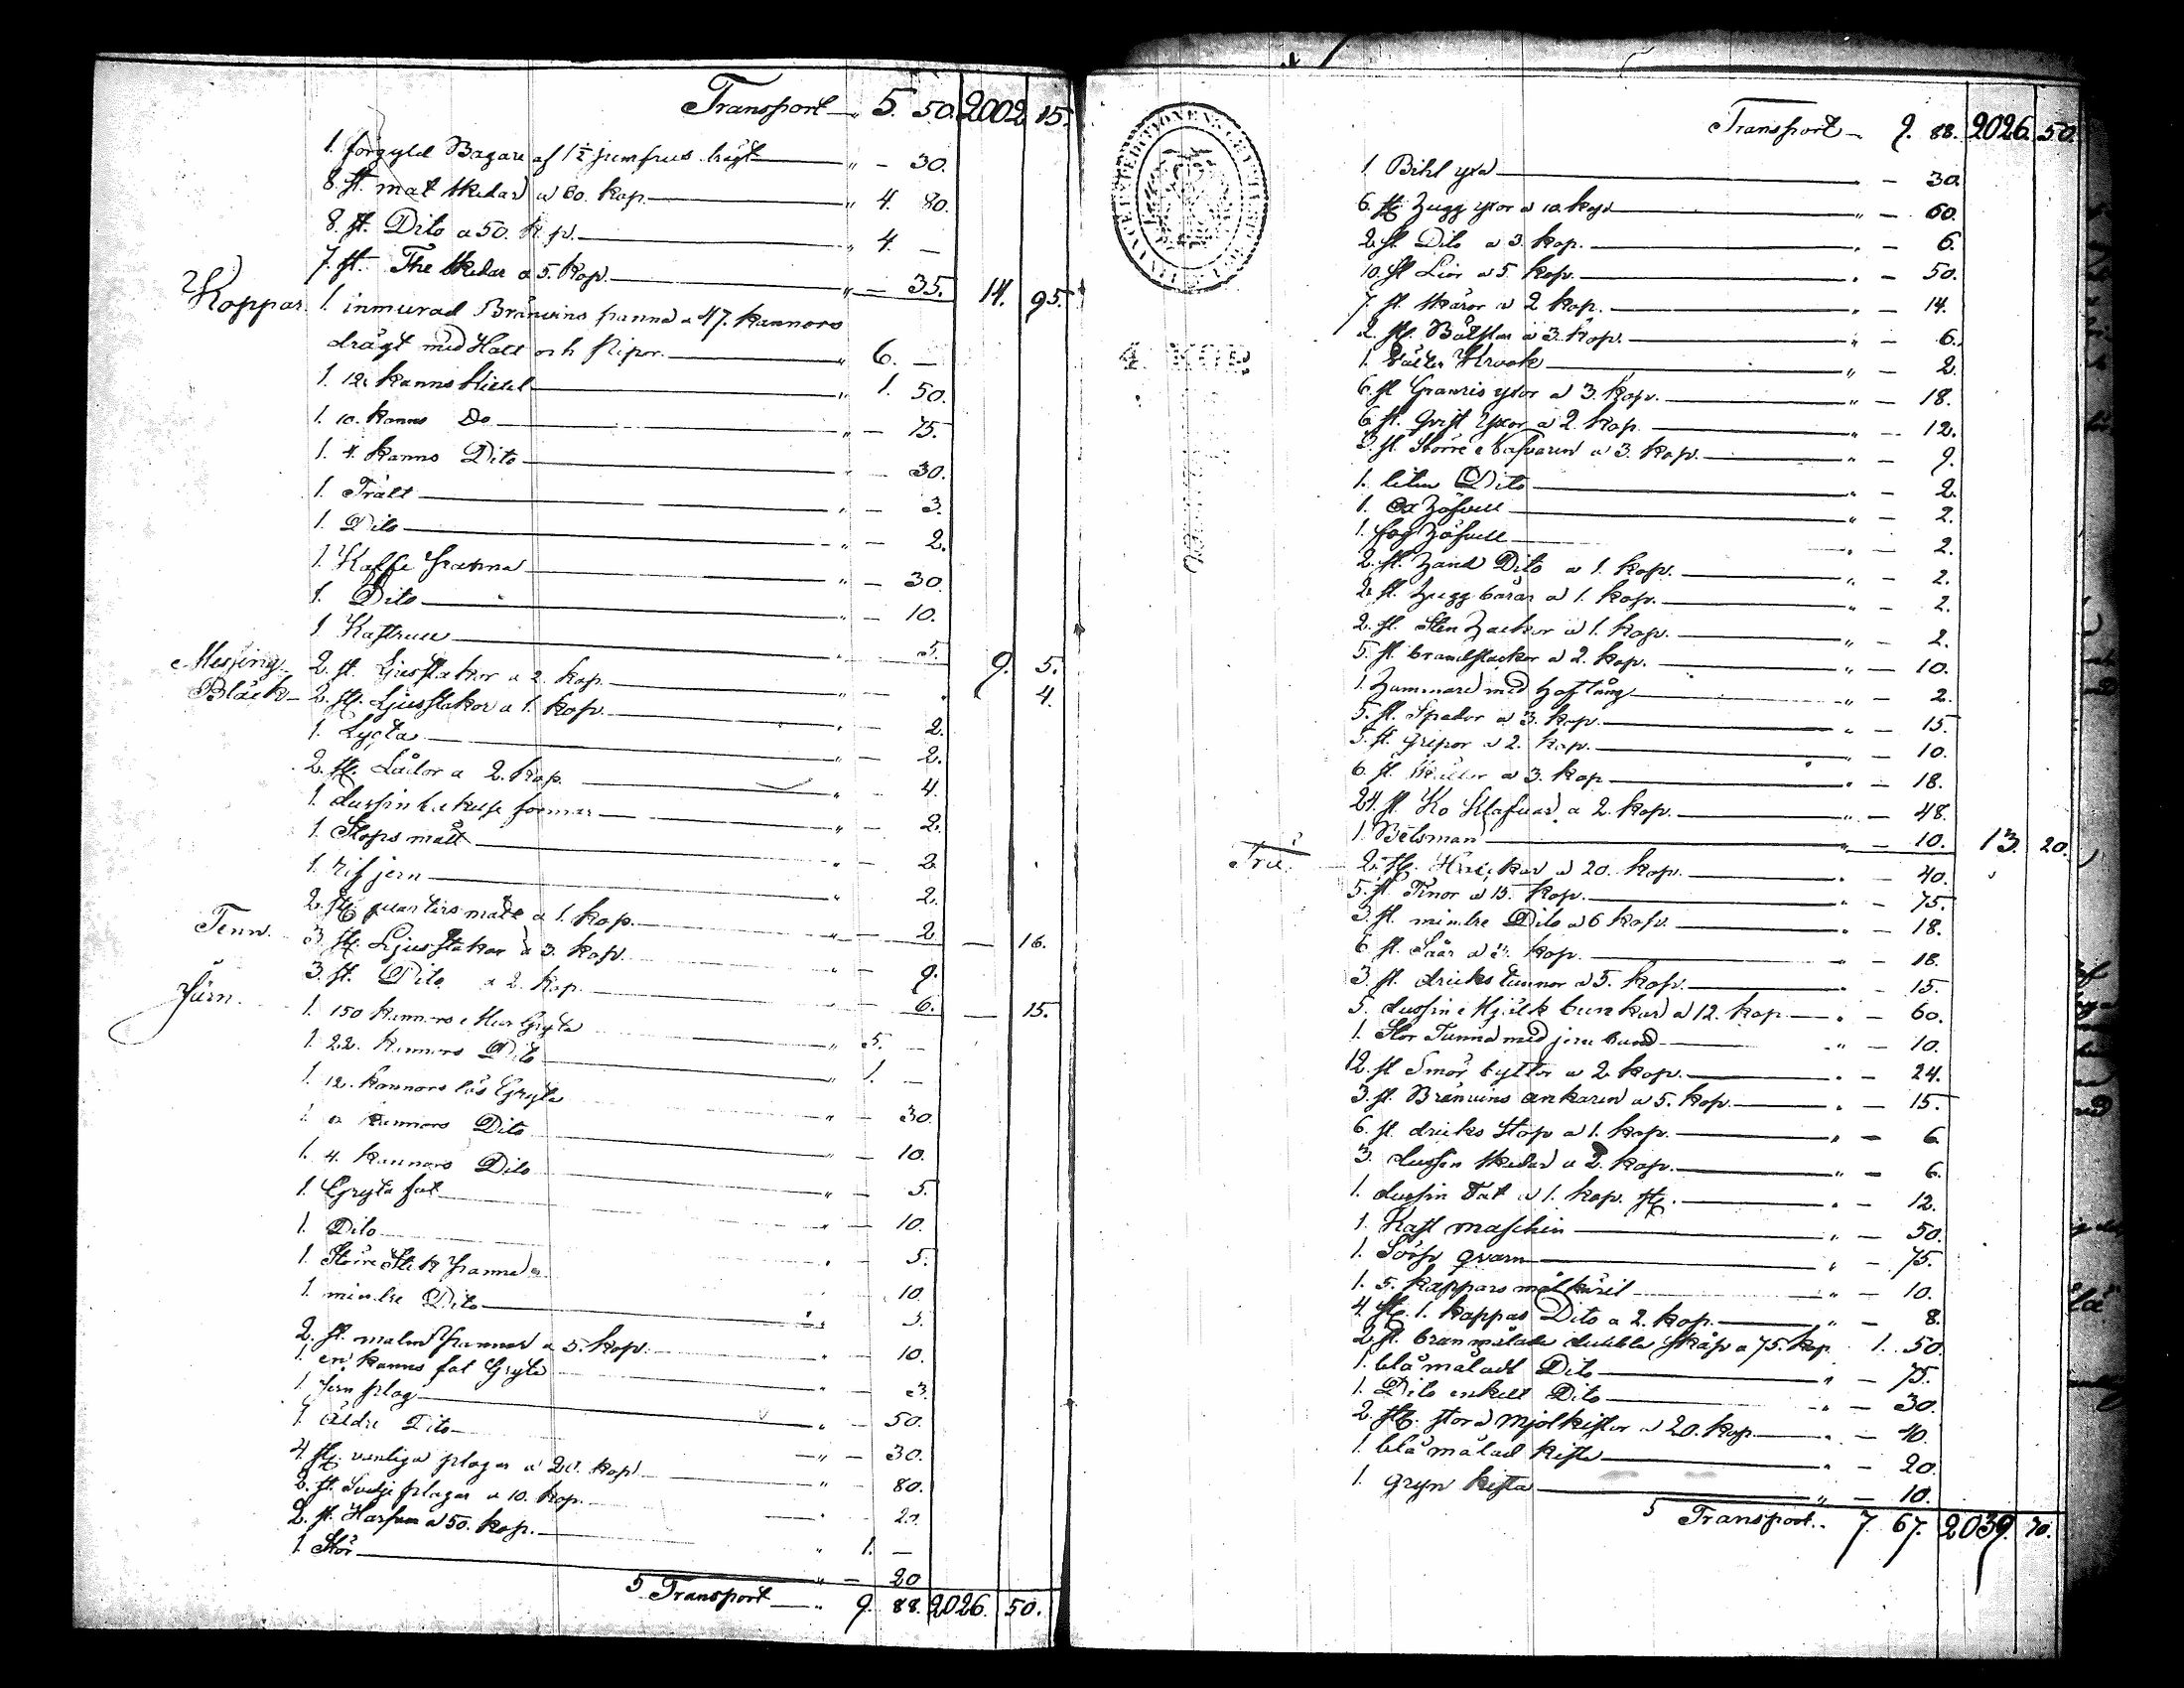 Transport — " 5. 50. 2002. 15.
1. förgyld Bagare af 1½ jumfrus drägt — " — 30.
8. st. mat skedar a 60. kop. — " 4. 80.
8. st. Dito a 50. kop. — " 4. —
7. st. The skedar a 5. kop. — " — 35. 14. 95.
Koppar. 1. inmurad Bränvins panna a 47. kannors
drägt med Hatt och Pipor. — " 6. —
1. 12. kanns kittel — " 1. 50.
1. 10. kanns Do — " — 75.
1. 4. kanns Dito — " — 30.
1. Tratt — " — 3.
1. Dito — " — 2.
1. Kaffe panna — " — 30.
1. Dito — " — 10.
1. Kastrull — " — 5. 9. 5.
Messing. 2. st. Ljusstakor a 2. kop. — " — " 4.
Bläck — 2. st. Ljusstakor a 1. kop. — " — 2.
1. Lyckta — " — 2.
2. st. Lådor a 2. kop. — " — 4.
1. dussin bakelse formar — " — 2.
1. Stops mått — " — 2.
1. rif jern — " — 2.
2. st. quarters mått a 1. kop. — " — 2. — 16.
Tenn. 3. st. Ljusstakar a 3. kop. — " — 9.
3. st. Dito a 2. kop. — " — 6. — 15.
Järn. 1. 150 kannors Mur Gryta — " 5. —
1. 22. kannors Dito — " 1. —
1. 12. kannors lös Gryta " — 30.
1. kannors Dito " — 10.
1. 4. kannors Dito " — 5.
1. Gryta fat " — 10.
1. Dito " — 5.
1. Större Stek panna " 10.
1. mindre Dito — " 5.
2. st. malm Pannor a 5. kop. — " — 10.
1. en kanns fat Gryta — " — 3.
1. Jern plog — " — 50.
1. Äldre Dito — " — 30.
4. st. vanliga plogar a 20. kop. — " — 80.
2. st. Svedje plogar a 10. kop. — " — 20.
2. st. Harfvar a 50. kop. — " 1. —
1. Stör — " — 20
5 Transport — " 9. 88. 2026. 50.
Transport — 9. 88. 2026. 50.
4. KOP.
1. Bihl yxa — " — 30.
6. st. Hugg yxor a 10. kop. — " — 60.
2. st. Dito a 3. kop. — " — 6.
10. st. Lior a 5. kop. — " — 50.
7. st. skäror a 2 kop. — " — 14.
2. st. a 3. kop. — " — 6.
1. Krook — " — 2.
6. st. Granris yxor a 3. kop. — " — 18.
6. st. qvist Yxor a 2. kop. — " — 12.
3. st. Större Nafvaren a 3. kop. — " — 9.
1. liten Dito — " — 2.
1. Ox höfvell — " — 2.
1. fog höfvell — " — 2.
2. st. hand Dito a 1. kop. — " — 2.
2. st. Hugg bårar a 1. kop. — " — 2.
2. st. Sten hackor a 1. kop. — " — 2.
5. st. brandstackor a 2. kop. — " — 10.
1. Hammare med hoftång — " — 2.
5. st. Spador a 3. kop. — " — 15
5. st. gripor a 2. kop. — " — 10.
6. st. a 3. kop. — " — 18.
24. st. Ko Klafvar a 2. kop. — " — 48.
1. Betsman — " — 10. 13. 20.
Trä. 2. st. kar a 20. kop. — " — 40.
5. st. Tinor a 15. kop. — " — 75.
3. st. mindre Dito a 6 kop. — " — 18.
6. st. Såår a kop. — " — 18.
3. st. dricks tunnor a 5. kop. — " — 15.
5. dussin Mjölk bunkar a 12. kop. — " — 60.
1. Stor Tunna med jern band — " — 10.
12. st Smör byttor a 2 kop. — " — 24.
3. st. Bränvins ankaren a 5. kop. — " — 15.
6. st. dricks stop a 1. kop. — " — 6.
3. dussin skedar a 2. kop. — " — 6.
1. dussin Fat a 1. kop. st. — " — 12.
1. Kast maschin — " — 50.
1. qvarn — " — 75.
1. 5. kappars mål käril — " — 10.
4. st. 1. kappas Dito a 2. kop. — " — 8.
2. st. brunmålade dubbla skåp a 75. kop 1. 50.
1. blå målad Dito — " — 75.
1. Dito enkelt Dito — " — 30.
2. st. stora mjölkistor a 20. kop. — " — 40.
1. blå målad kista — " — 20.
1. gryn kista — " — 10.
5 Transport. " 7. 67. 2039. 70.